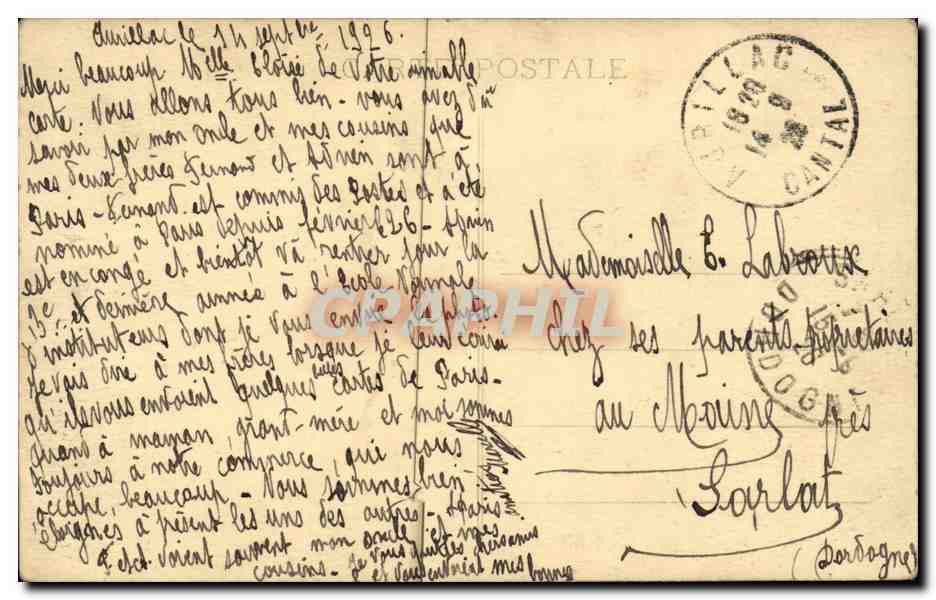 Aurillac le 14 septbre 1926.
CARTE POSTALE
Merci beaucoup Melle Eloïse de votre aimable
carte. Nous allons tous bien - vous avez dû
savoir par mon oncle et mes cousins que
mes deux frères Fernand et Adrien sont à
Paris - Fernand est commis des Postes et a été
nommé à Paris depuis février 1926 - Adrien
est en congé et bientôt va rentrer pour la
3e et dernière année à l'école Normale
d'instituteurs dont je vous envoie la photo.
Je vais dire à mes frères lorsque je leur écrirai
qu'ils vous envoient quelques cartes de Paris -
Quand à maman, grand-mère et moi sommes
toujours à notre commerce, qui nous
occupe, beaucoup - Nous sommes bien
éloignés à présent les uns des autres - A Paris
voient souvent mon oncle et mes
cousins - Je vous quitte
et vous envoyant mes bonnes
AURILLAC
18 20
14 9
26
CANTAL
Mademoiselle E. Labroux
chez ses parents Propriétaires
au Mouine près
Sarlat
(Dordogne)
CPAPHIL